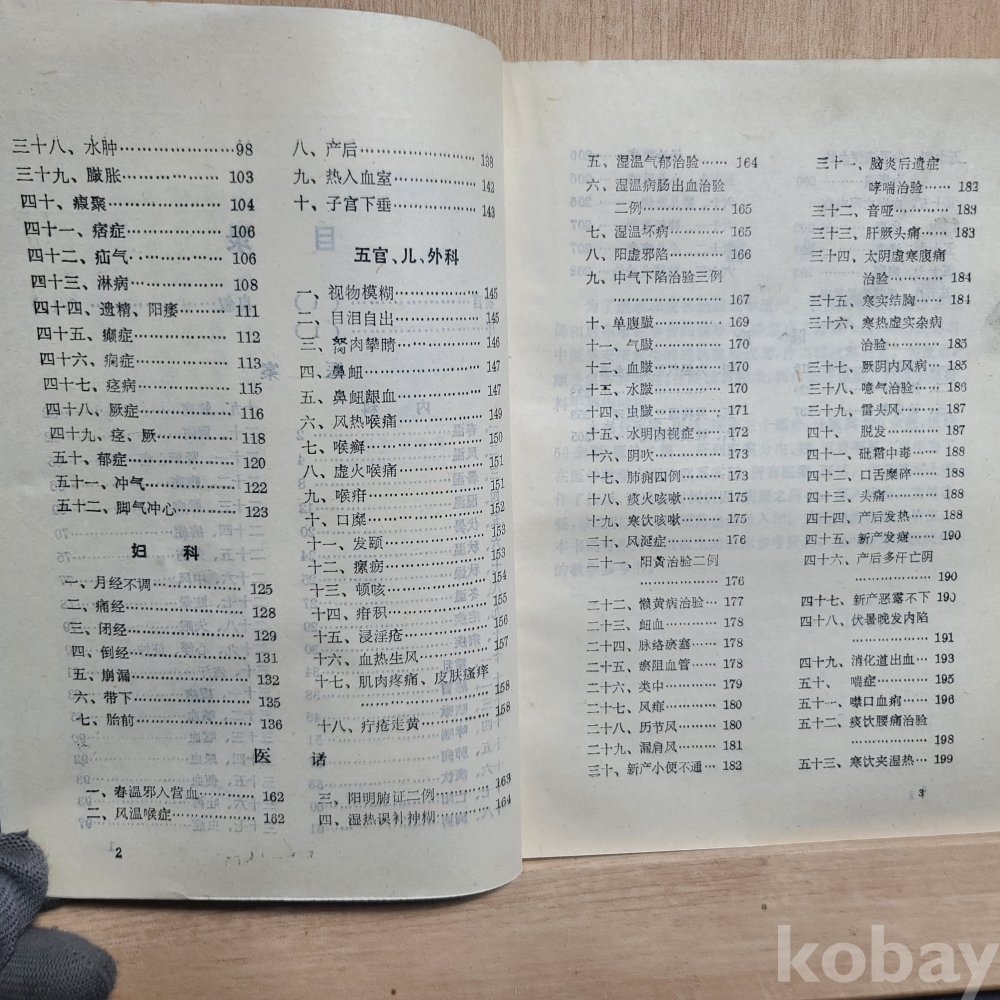 三十八、水肿……………………98
三十九、臌胀………………103
四十、癥聚…………………104
四十一、痞症………………106
四十二、疝气………………106
四十三、淋病………………108
四十四、遗精、阳痿………111
四十五、癫症………………112
四十六、痫症………………113
四十七、痉病………………115
四十八、厥症………………116
四十九、痉、厥……………118
五十、郁症…………………120
五十一、冲气………………122
五十二、脚气冲心…………123
妇 科
一、月经不调………………125
二、痛经……………………128
三、闭经……………………129
四、倒经……………………131
五、崩漏……………………132
六、带下……………………135
七、胎前……………………136
八、产后……………………138
九、热入血室………………142
十、子宫下垂………………143
五官、儿、外科
一、视物模糊………………145
二、目泪自出………………145
三、胬肉攀睛………………146
四、鼻衄……………………147
五、鼻衄龈血………………147
六、风热喉痛………………149
七、喉癣……………………150
八、虚火喉痛………………151
九、喉疳……………………151
十、口糜……………………152
十一、发颐…………………153
十二、瘰疬…………………153
十三、顿咳…………………154
十四、疳积…………………155
十五、浸淫疮………………156
十六、血热生风……………157
十七、肌肉疼痛、皮肤瘙痒
……………………158
十八、疔疮走黄……………158
医 话
一、春温邪入营血…………162
二、风温喉症………………162
三、阳明腑证二例…………163
四、湿热误补神糊…………164
2
五、湿温气郁治验…… 164
六、湿温病肠出血治验
二例…………… 165
七、湿温坏病………… 165
八、阳虚邪陷………… 166
九、中气下陷治验三例
…………………… 167
十、单腹臌…………… 169
十一、气臌…………… 170
十二、血臌…………… 170
十三、水臌…………… 170
十四、虫臌…………… 171
十五、水明内视症…… 172
十六、阴吹…………… 173
十七、肺痈四例……… 173
十八、痰火咳嗽……… 175
十九、寒饮咳嗽……… 175
二十、风涎症………… 176
二十一、阳黄治验二例
…………………… 176
二十二、懒黄病治验… 177
二十三、衄血………… 178
二十四、脉络瘀塞…… 178
二十五、瘀阻血管…… 178
二十六、类中………… 179
二十七、风痱………… 180
二十八、历节风……… 180
二十九、漏肩风……… 181
三十、新产小便不通… 182
三十一、脑炎后遗症
哮喘治验……… 182
三十二、音哑………… 183
三十三、肝厥头痛…… 183
三十四、太阴虚寒腹痛
治验…………… 184
三十五、寒实结胸…… 184
三十六、寒热虚实杂病
治验…………… 185
三十七、厥阴内风病… 185
三十八、噫气治验…… 186
三十九、雷头风……… 187
四十、 脱发………… 187
四十一、砒霜中毒…… 188
四十二、口舌糜碎…… 188
四十三、头痛………… 188
四十四、产后发热…… 188
四十五、新产发癍…… 190
四十六、产后多汗亡阴
…………………… 190
四十七、新产恶露不下 190
四十八、伏暑晚发内陷
…………………… 191
四十九、消化道出血… 193
五十、 喘症………… 195
五十一、噤口血痢…… 196
五十二、痰饮腰痛治验
…………………… 198
五十三、寒饮夹湿热… 199
3
kobay